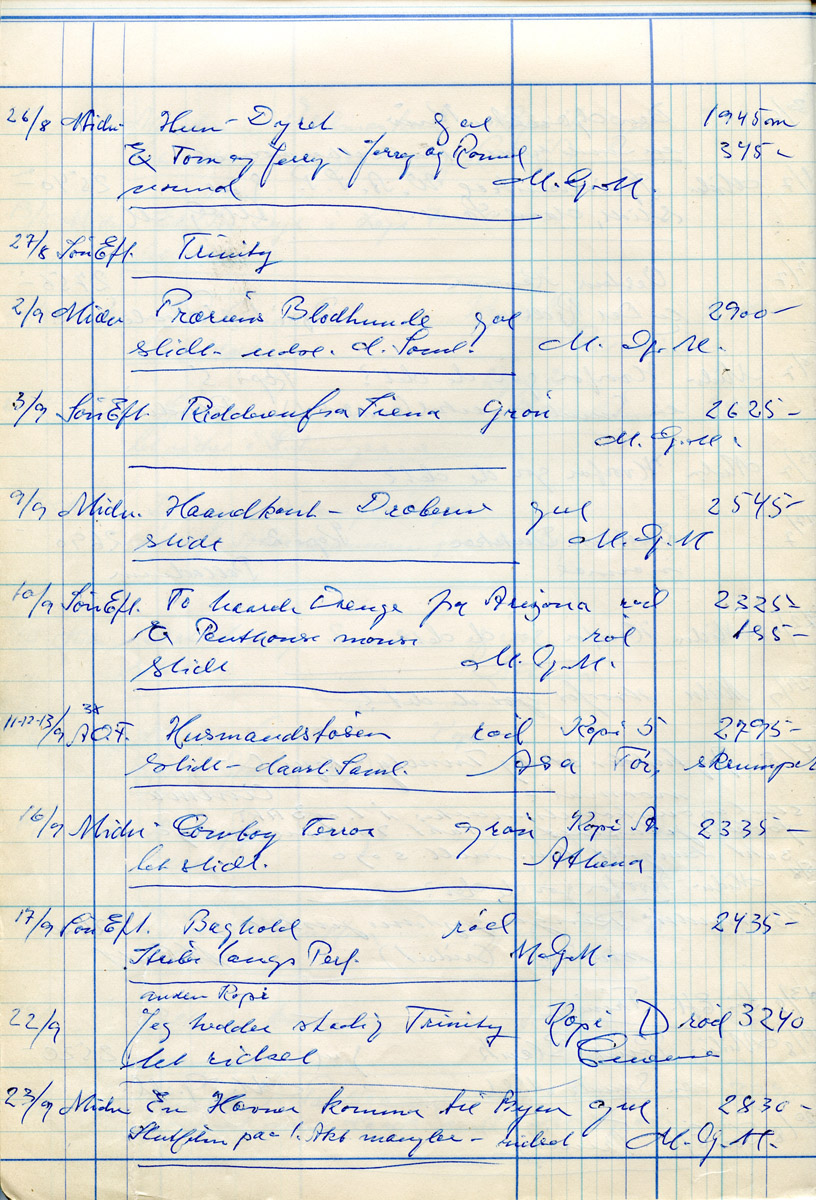 26/8 Midn. Hun-Dyret gul 1945 m
Ex Tom og Jerry - Jerry og 345-
M.G.M.
27/8 Søn Eft. Trinity
2/9 Midn. Præriens Blodhunde gul 2900-
slidt - d. Saml. M.G.M.
3/9 Søn Eft. Ridderen fra Siena Grøn 2625-
M.G.M.
9/9 Midn. Haandkant - Dræberne gul 2545-
slidt M.G.M
10/9 Søn Eft. To haarde Drenge fra Arizona rød 2325-
Ex Penthouse mouse rød 195-
slidt M.G.M.
11-12-13/9 3x A.O.F. Husmandstøsen rød Kopi 5 2795-
slidt - daarl. Saml. Asa Tør, skrumpet
16/9 Midn. Cowboy Terror grøn Kopi 2335-
let slidt. Athena
17/9 Søn Eft. Baghold rød 2435-
langs Perf. M.G.M.
anden Kopi
22/9 Jeg hedder stadig Trinity Kopi D rød 3240
let ridset
23/9 Midn. En Hævner kommer til Byen gul 2830-
Slutfilm paa 1. Akt mangler - M.G.M.